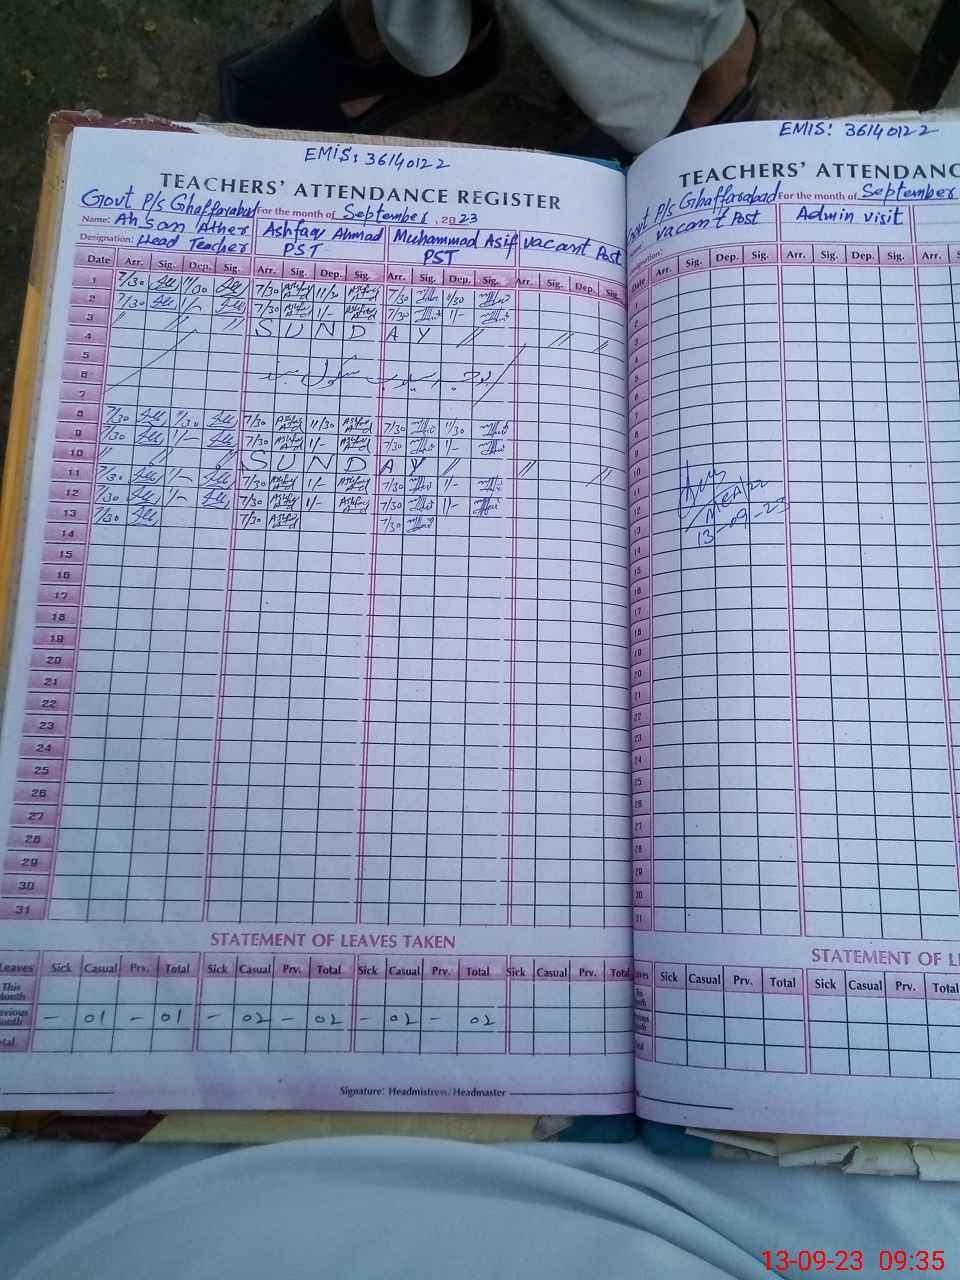 EMIS: 36140122
TEACHERS' ATTENDANCE REGISTER
Govt P/s Ghaffarabad For the month of September, 2023
Name: Ahsan Ather Ashfaq Ahmad Muhammad Asif vacant Post
Designation: Head Teacher PST PST
Date Arr. Sig. Dep. Sig. Arr. Sig. Dep. Sig. Arr. Sig. Dep. Sig. Arr. Sig. Dep. Sig.
1 7/30 11/30 7/30 11/30 7/30 11/30
2 7/30 1/- 7/30 1/- 7/30 1/-
3 // // // SUNDAY // // //
4
5
6
7
8 7/30 11/30 7/30 11/30 7/30 11/30
9 7/30 1/- 7/30 1/- 7/30 1/-
10 // // // SUNDAY // // //
11 7/30 1/- 7/30 1/- 7/30 1/-
12 7/30 1/- 7/30 1/- 7/30 1/-
13 7/30 7/30 7/30
14
15
16
17
18
19
20
21
22
23
24
25
26
27
28
29
30
31
STATEMENT OF LEAVES TAKEN
Leaves Sick Casual Prv. Total Sick Casual Prv. Total Sick Casual Prv. Total Sick Casual Prv. Total
This Month
Previous Month - 01 - 01 - 02 - 02 - 02 - 02
Total
Signature: Headmistress/Headmaster
EMIS: 36140122
TEACHERS' ATTENDANC
Govt P/s Ghaffarabad For the month of September
vacant Post Admin visit
Date Arr. Sig. Dep. Sig. Arr. Sig. Dep. Sig. Arr. S
1
2
3
4
5
6
7
8
9
10
11
12
13
14
15
16
17
18
19
20
21
22
23
24
25
26
27
28
29
30
31
MEA/22
13-09-23
STATEMENT OF L
Sick Casual Prv. Total Sick Casual Prv. Total
13-09-23 09:35